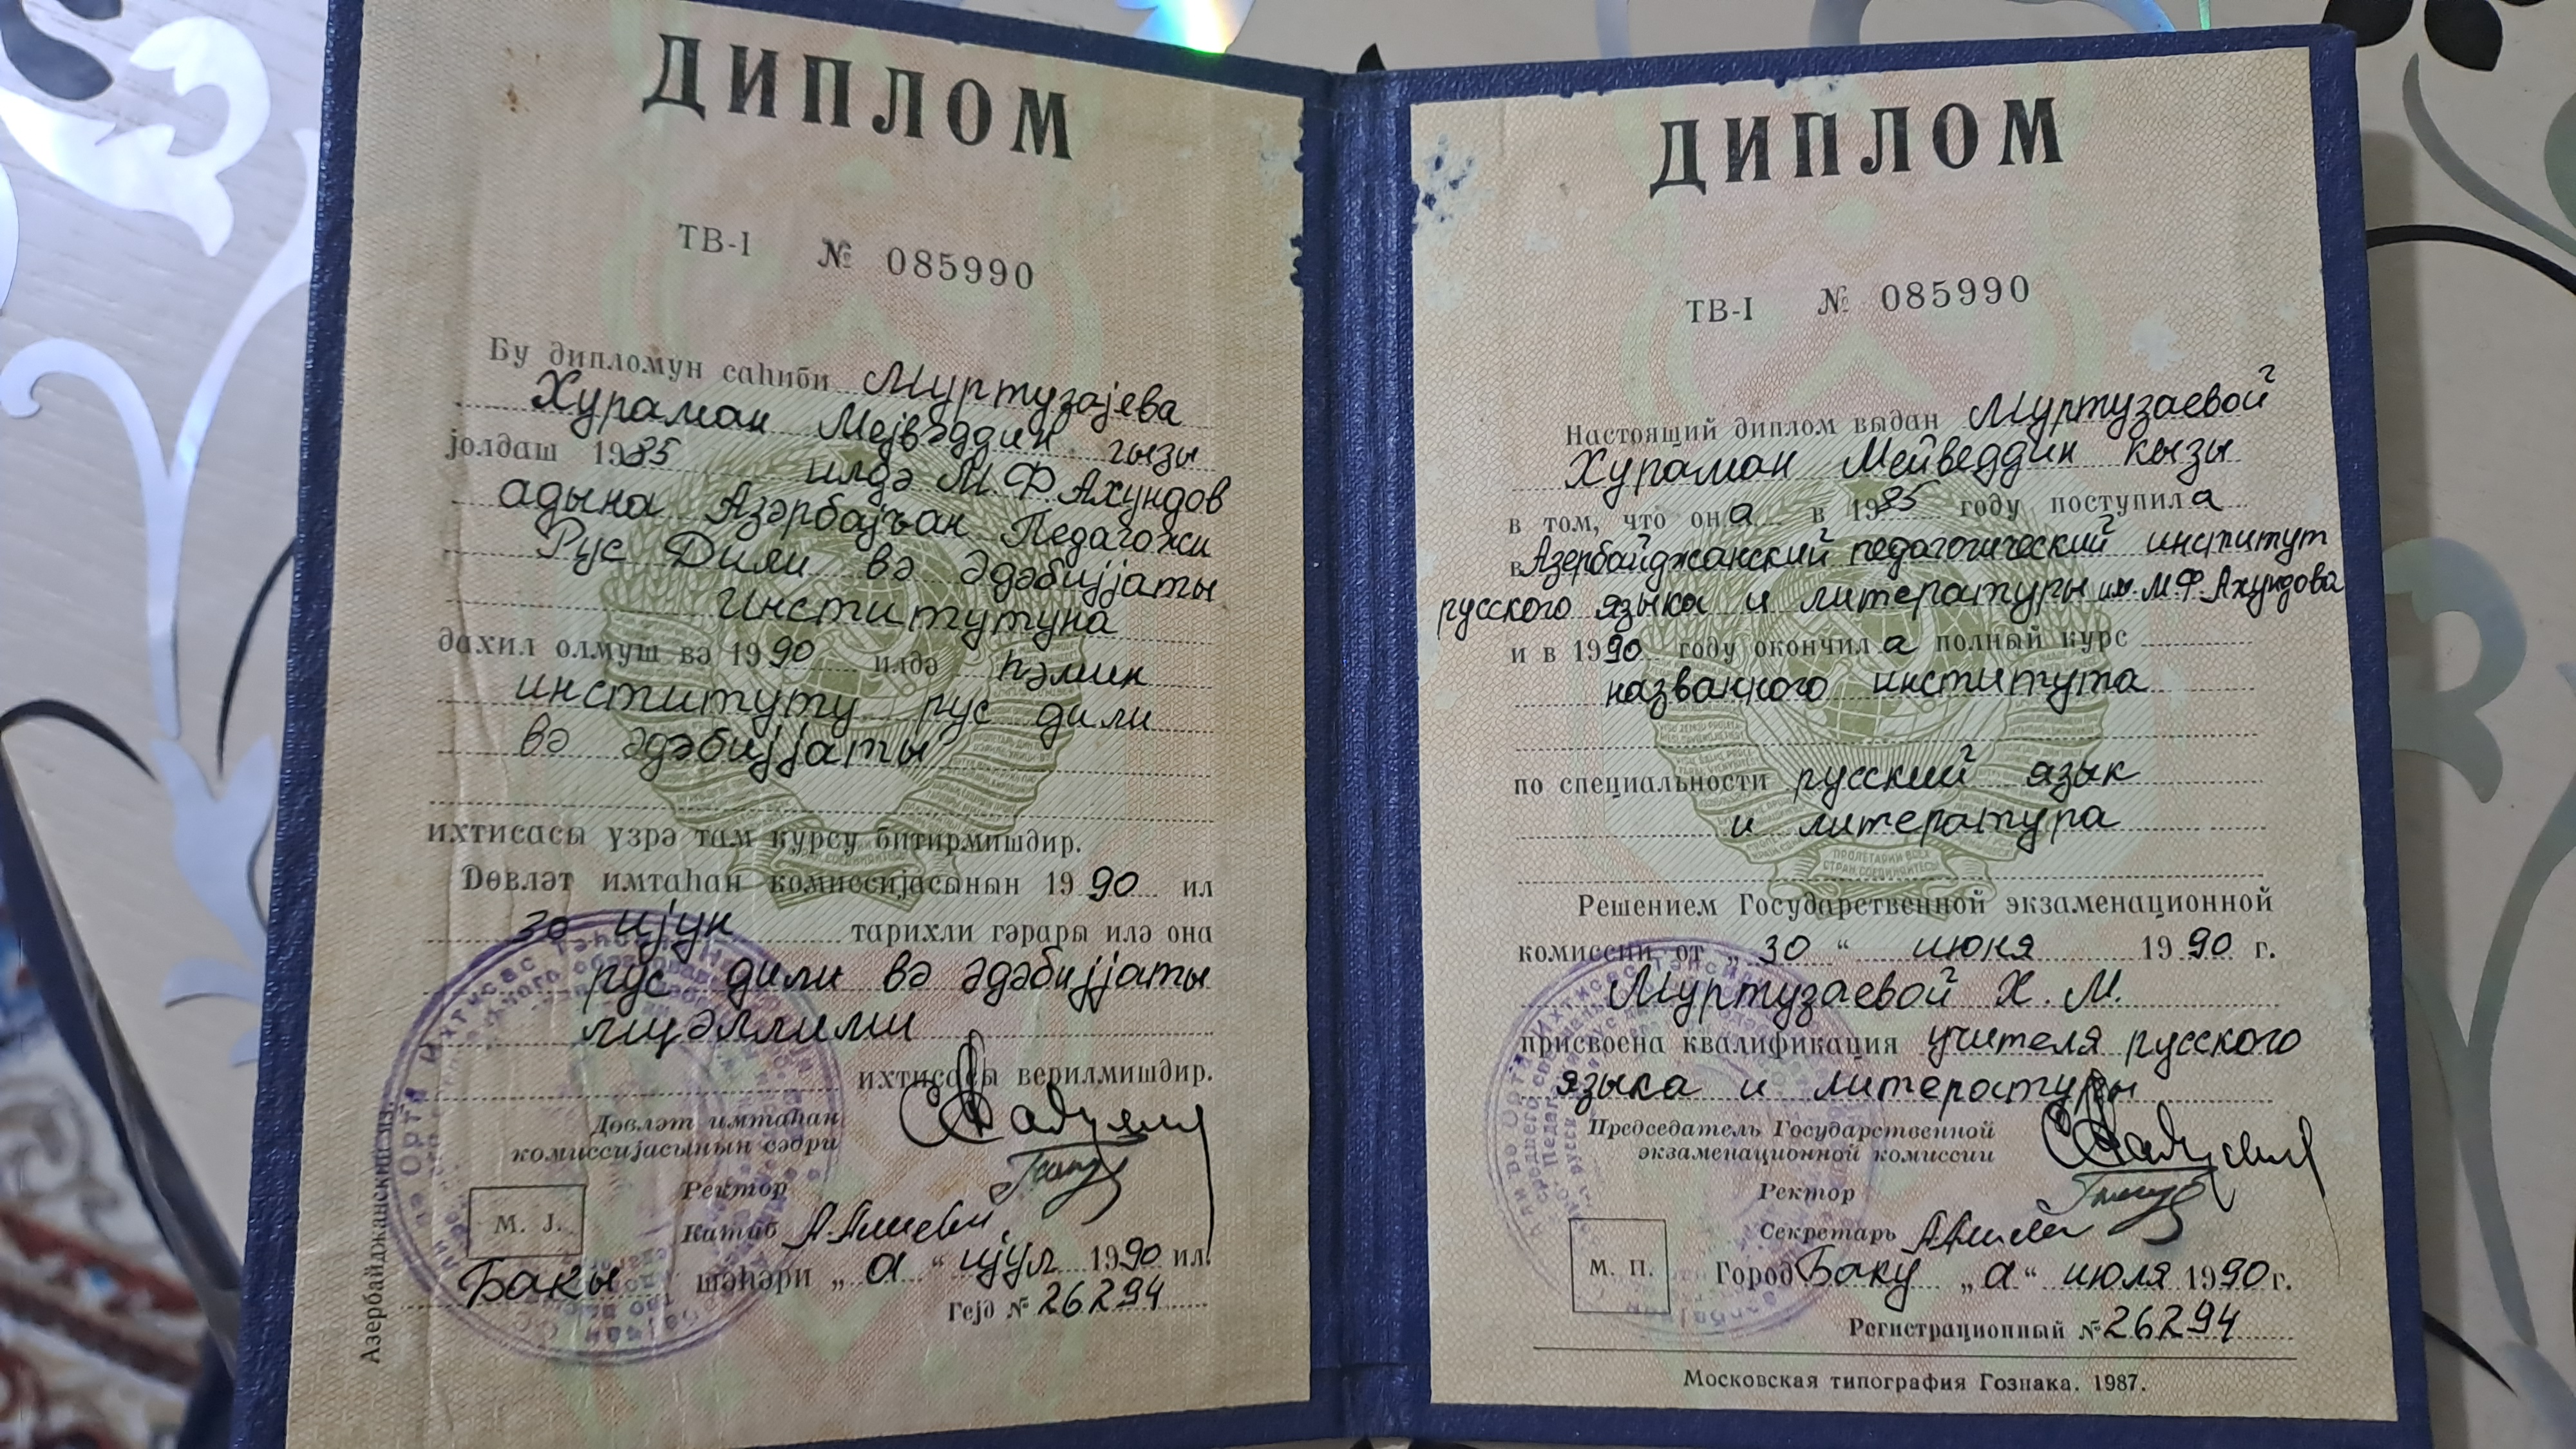 ДИПЛОМ
ТВ-I № 085990
Бу дипломун саһиби Муртузајева
Хураман Мејвәддин гызы
јолдаш 1985 илдә М.Ф.Ахундов
адына Азәрбајҹан Педагожи
Рус Дили вә Әдәбијјаты
Институтуна
дахил олмуш вә 1990 илдә һәмин
институту рус дили
вә әдәбијјаты
ихтисасы үзрә там курсу битирмишдир.
Дөвләт имтаһан комиссијасынын 1990 ил
30 ијун тарихли гәрары илә она
рус дили вә әдәбијјаты
мүәллими
ихтисасы верилмишдир.
Дөвләт имтаһан
комиссијасынын сәдри
Ректор
М. Ј.
Катиб
Бакы шәһәри „а“ ијул 1990 ил.
Гејд № 26294
Азербайджанский яз.
ДИПЛОМ
ТВ-I № 085990
Настоящий диплом выдан Муртузаевой
Хураман Мейведдин кызы
в том, что она в 1985 году поступила
в Азербайджанский педагогический институт
русского языка и литературы им. М.Ф.Ахундова
и в 1990 году окончила полный курс
названного института
по специальности русский язык
и литература
Решением Государственной экзаменационной
комиссии от „30“ июня 1990 г.
Муртузаевой Х.М.
присвоена квалификация учителя русского
языка и литературы
Председатель Государственной
экзаменационной комиссии
Ректор
Секретарь
М. П.
Город Баку „а“ июля 1990 г.
Регистрационный № 26294
Московская типография Гознака. 1987.